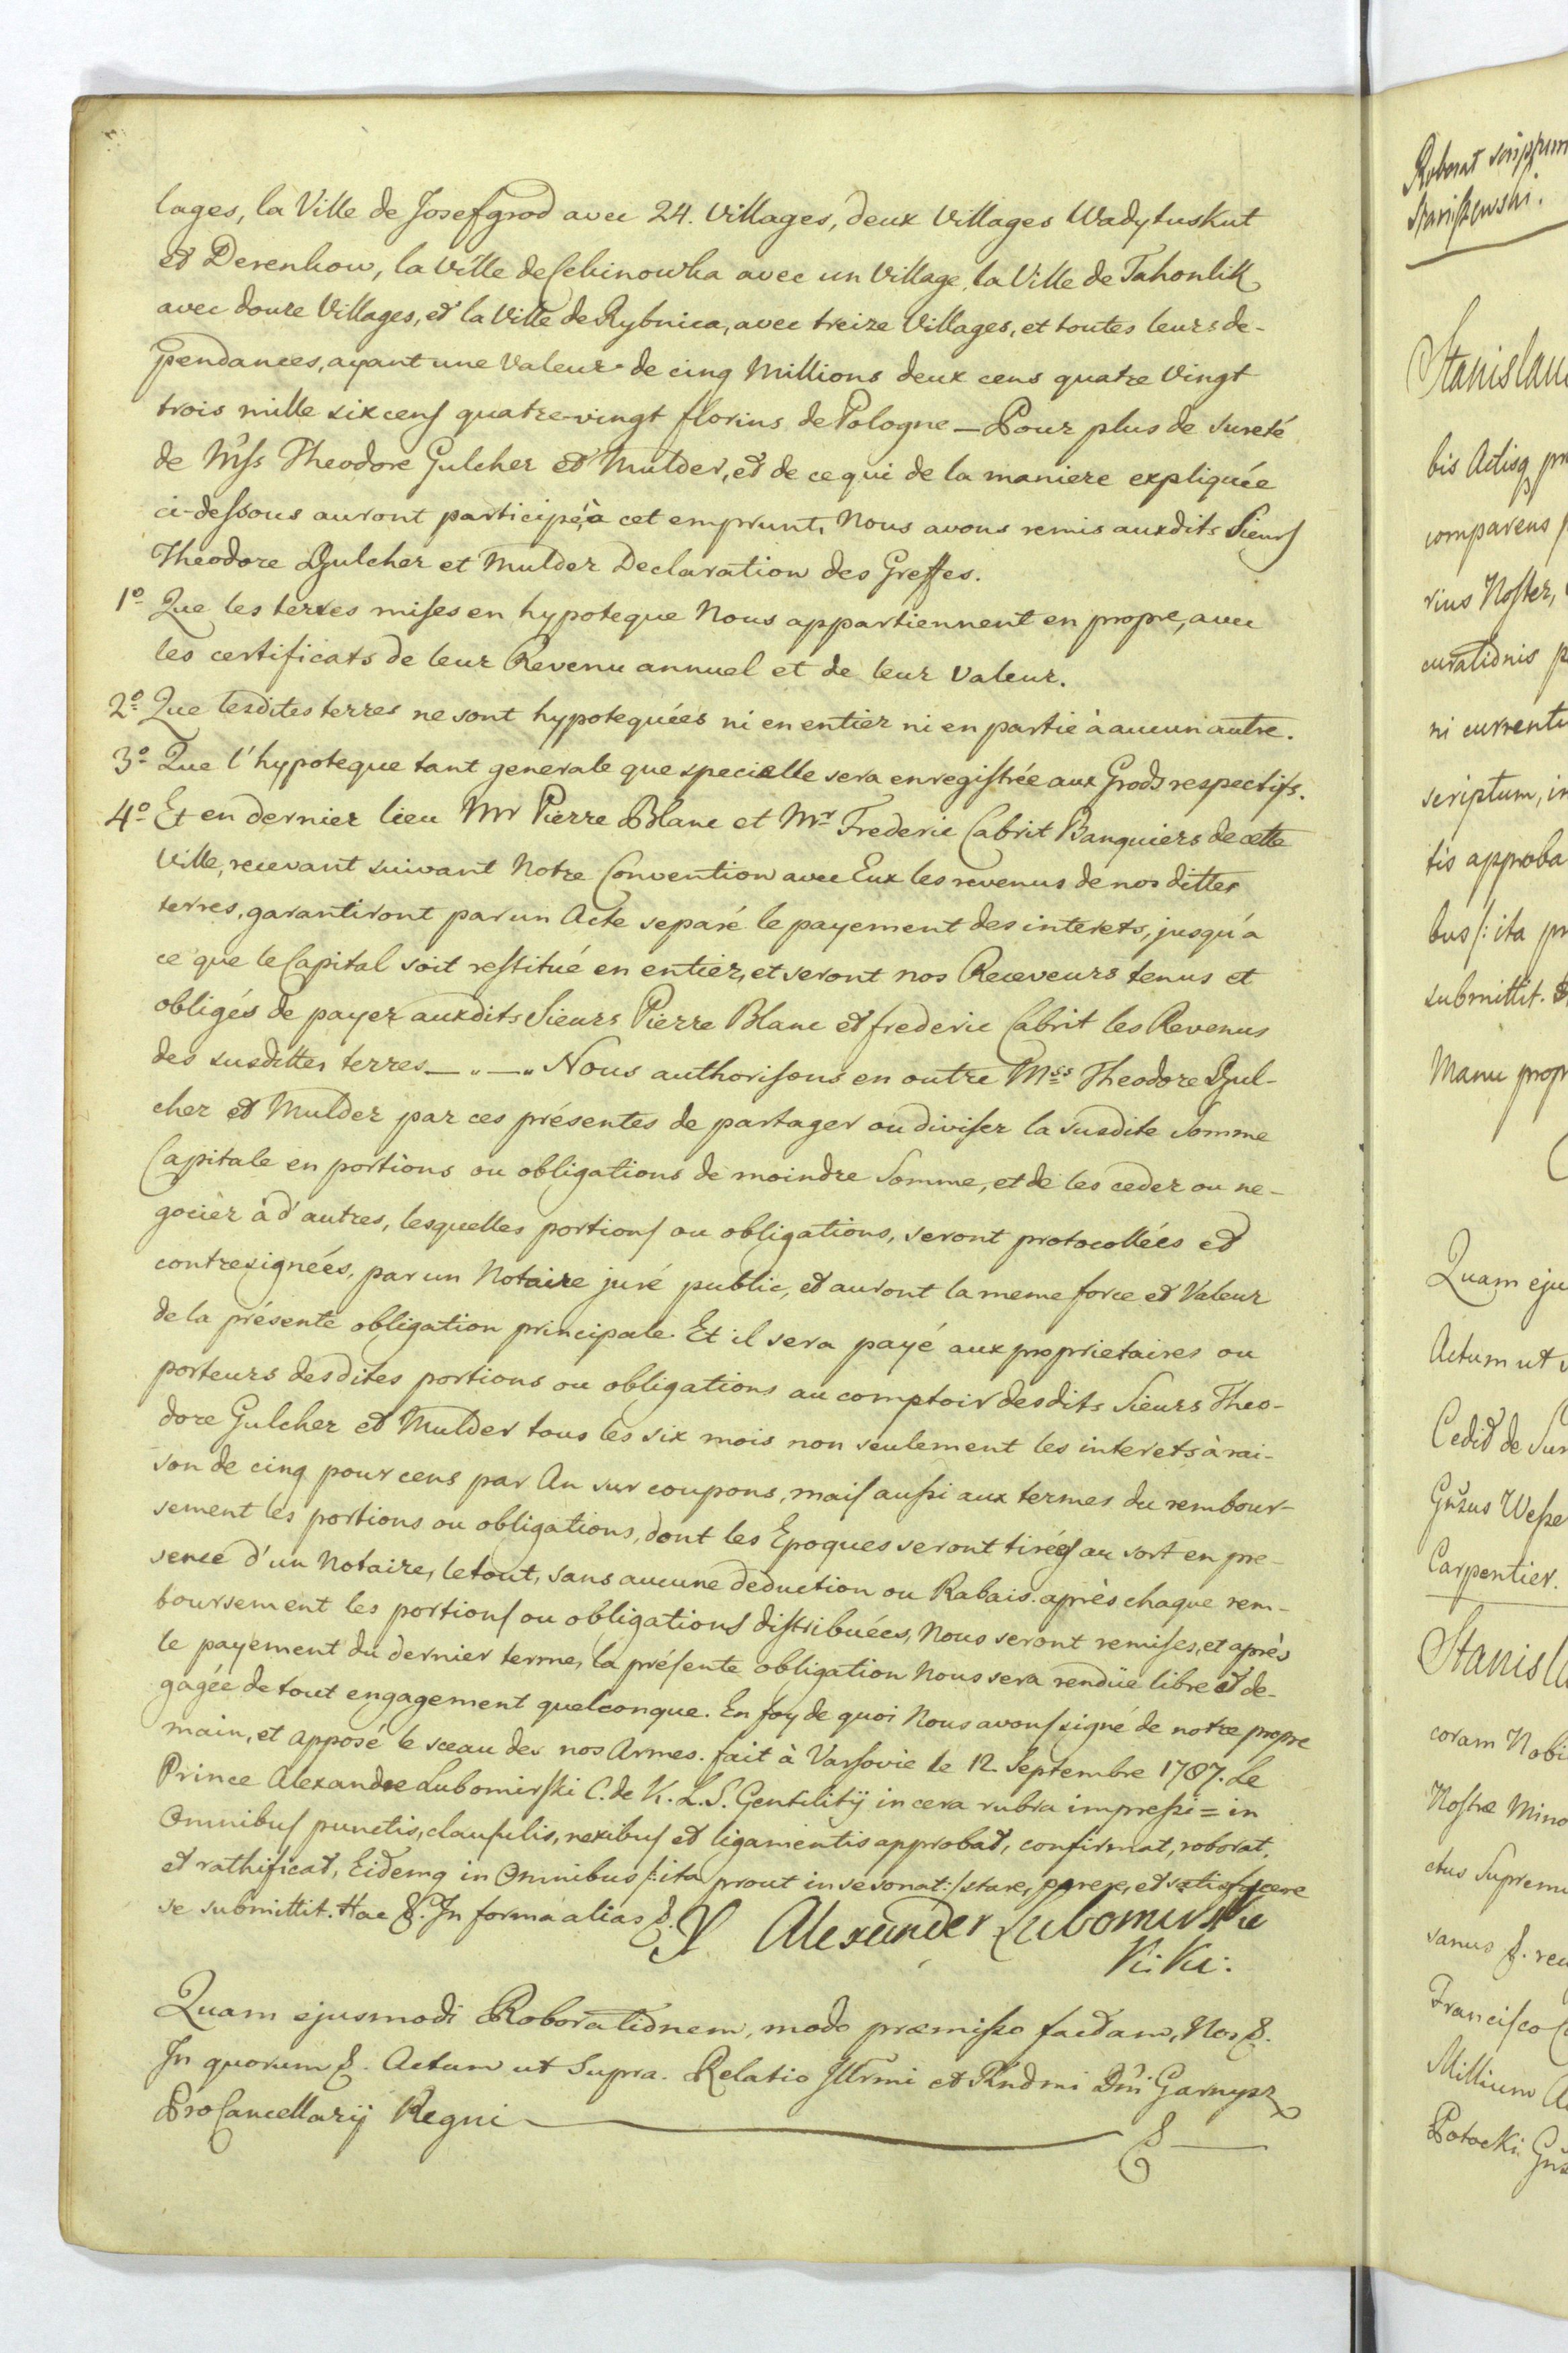 lages, la Ville de Josefgrod avec 24. Villages, deux Villages Wadytuskut
et Derenkow, la Ville de Cekinowka avec un Village, la Ville de Tahonlik
avec douze Villages, et la Ville de Rybnica, avec treize Villages, et toutes leurs de-
pendances, ayant une Valeur de cinq Millions deux cens quatre Vingt
trois mille six cens quatre-vingt florins de Pologne — Pour plus de sureté
de Mss Theodore Gulcher et Mulder, et de ce qui de la maniere expliquée
ci-dessous auront participé, à cet emprunt, Nous avons remis auxdits Sieurs
Theodore Gulcher et Mulder Declaration des Greffes.
1º Que les terres mises en hypoteque Nous appartiennent en propre, avec
les certificats de leur Revenu annuel et de leur Valeur.
2º Que lesdites terres ne sont hypotequées ni en entier ni en partie à aucun autre.
3º Que l'hypoteque tant generale que specielle sera enregistrée aux Grods respectifs.
4º Et en dernier lieu Mr Pierre Blanc et Mr Frederic Cabrit Banquiers de cette
Ville, recevant suivant Notre Convention avec Eux les revenus de nos dittes
terres, garantiront par un Acte separé le payement des interets, jusqu'a
ce que le Capital soit restitué en entier, et seront nos Receveurs tenus et
obligés de payer auxdits Sieurs Pierre Blanc et frederic Cabrit les Revenus
des susdittes terres — „ — „ Nous authorisons en outre Mss Theodore Gul-
cher et Mulder par ces présentes de partager ou diviser la susdite Somme
Capitale en portions ou obligations de moindre Somme, et de les ceder ou ne-
gocier à d'autres, lesquelles portions ou obligations, seront protocollées et
contresignées, par un Notaire juré public, et auront la meme force et Valeur
de la présente obligation principale. Et il sera payé aux proprietaires ou
porteurs desdites portions ou obligations au comptoir desdits Sieurs Theo-
dore Gulcher et Mulder tous les six mois non seulement les interets à rai-
son de cinq pour cens par An sur coupons, mais aussi aux termes du rembour-
sement les portions ou obligations, dont les Epoques seront tirées au sort en pre-
sence d'un Notaire, le tout, sans aucune deduction ou Rabais. après chaque rem-
boursement les portions ou obligations distribuées, Nous seront remises, et après
le payement du dernier terme, la présente obligation Nous sera rendüe libre et de-
gagée de tout engagement quelconque. En foy de quoi Nous avons signé de notre propre
main, et apposé le sceau de nos Armes. fait à Varsovie le 12 Septembre 1787. Le
Prince Alexandre Lubomirski C. de K. L.S. Gentilitij in cera rubra impressi = in
Omnibus punctis, clausulis, nexibus et ligamentis approbat, confirmat, roborat,
et rathificat, Eidemq in Omnibus /: ita prout in se sonat :/ stare, parere, et satisfacere
se submittit. Hac &. In forma alias &. X Alexander Lubomirski
K: Ki:
Quam ejusmodi Roborationem, modo præmisso factam, Nos &.
In quorum &. Actum ut Supra. Relatio Illrmi et Rndmi Dni Garnysz
ProCancellarij Regni

Roborat
Staniszewski.
Stanislau
bis Actisq
comparens
rius Noster,
curationis
ni currenti
scriptum, in
tis approba
bus /: ita
submittit.
Manu prop
Quam eju
Actum ut
Cedit de
Carpentier.
Stanis
coram Nobi
Nostræ Mino
ctus Supremi
Francisco
Millium
Potocki